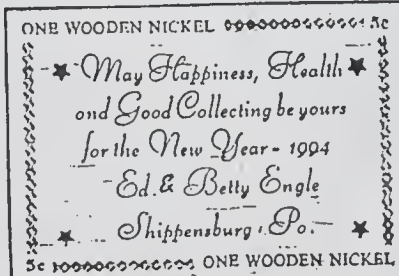 ONE WOODEN NICKEL 5c
May Happiness, Health
and Good Collecting be yours
for the New Year - 1994
Ed. & Betty Engle
Shippensburg, Pa.
5c ONE WOODEN NICKEL